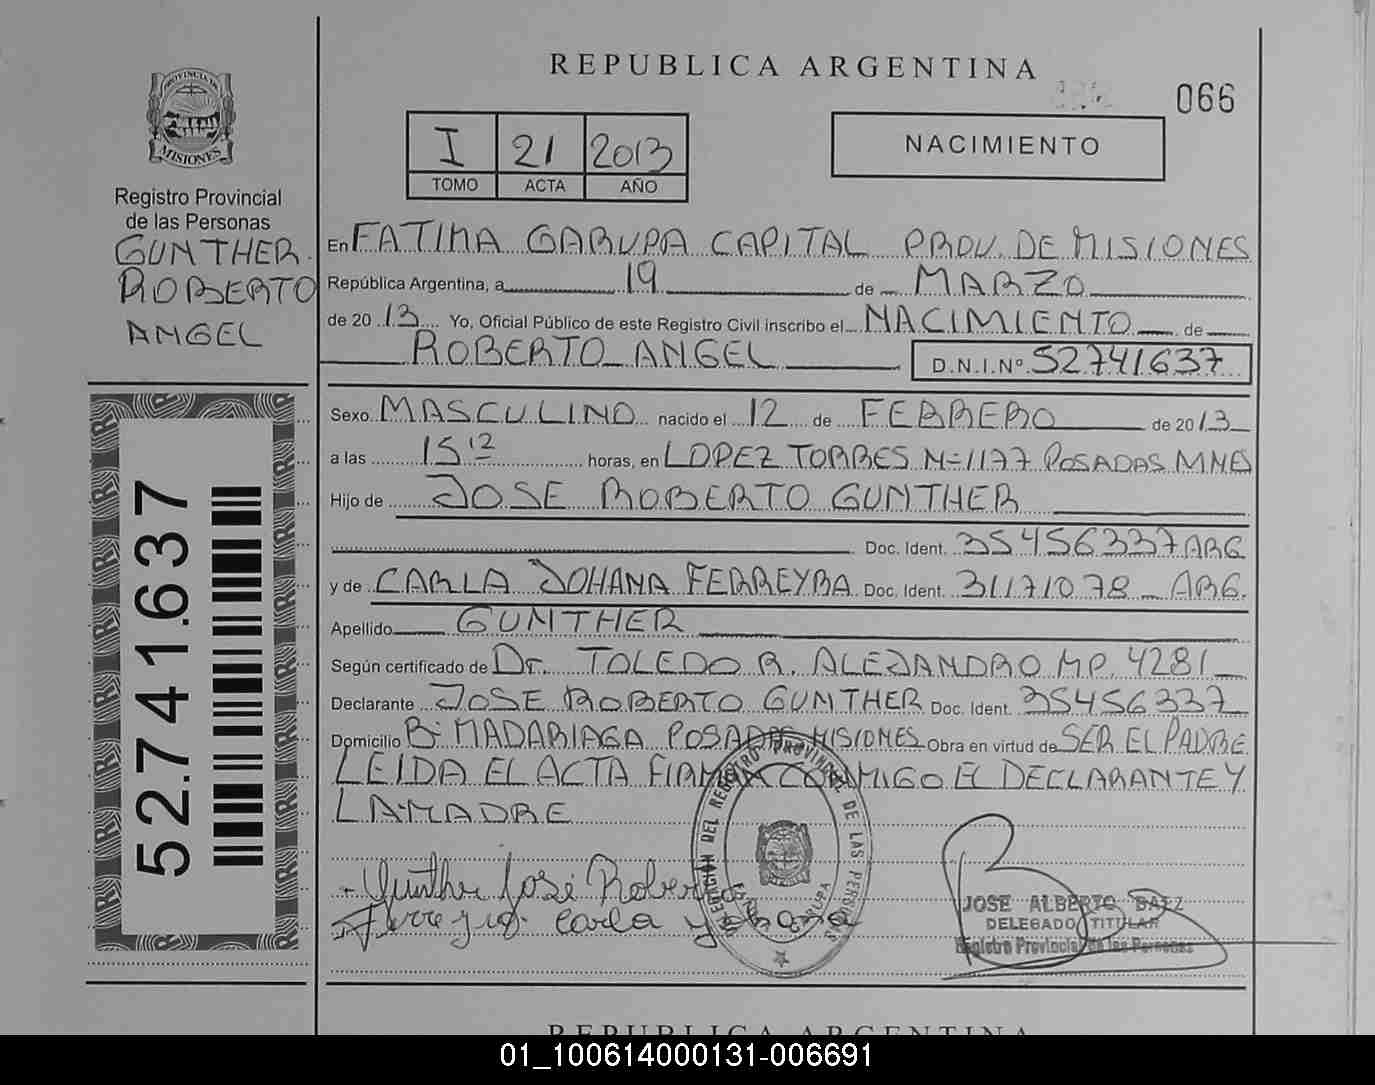 REPUBLICA ARGENTINA
066
PROVINCIA DE
MISIONES
Registro Provincial
de las Personas
GUNTHER
ROBERTO
ANGEL
52.741.637
I 21 2013
TOMO ACTA AÑO
NACIMIENTO
En FATIMA GARUPA CAPITAL PROV. DE MISIONES
República Argentina, a 19 de MARZO
de 2013 Yo, Oficial Público de este Registro Civil inscribo el NACIMIENTO de
ROBERTO ANGEL D.N.I.Nº 52741637
Sexo MASCULINO nacido el 12 de FEBRERO de 2013
a las 15 12 horas, en LOPEZ TORRES Nº 1177 POSADAS MNES
Hijo de JOSE ROBERTO GUNTHER
Doc. Ident. 35456337 ARG
y de CARLA JOHANA FERREYRA Doc. Ident. 31171078 ARG.
Apellido GUNTHER
Según certificado de Dr. TOLEDO R. ALEJANDRO MP. 4281
Declarante JOSE ROBERTO GUNTHER Doc. Ident. 35456337
Domicilio Bº MADARIAGA POSADAS MISIONES Obra en virtud de SER EL PADRE
LEIDA EL ACTA FIRMAN CONMIGO EL DECLARANTE Y
LA MADRE
Gunther José Roberto
Ferreyra Carla Yohana
DEL REGISTRO PROVINCIAL DE LAS PERSONAS
GARUPA
JOSE ALBERTO BAEZ
DELEGADO TITULAR
Registro Provincial de las Personas
REPUBLICA ARGENTINA
01_100614000131-006691